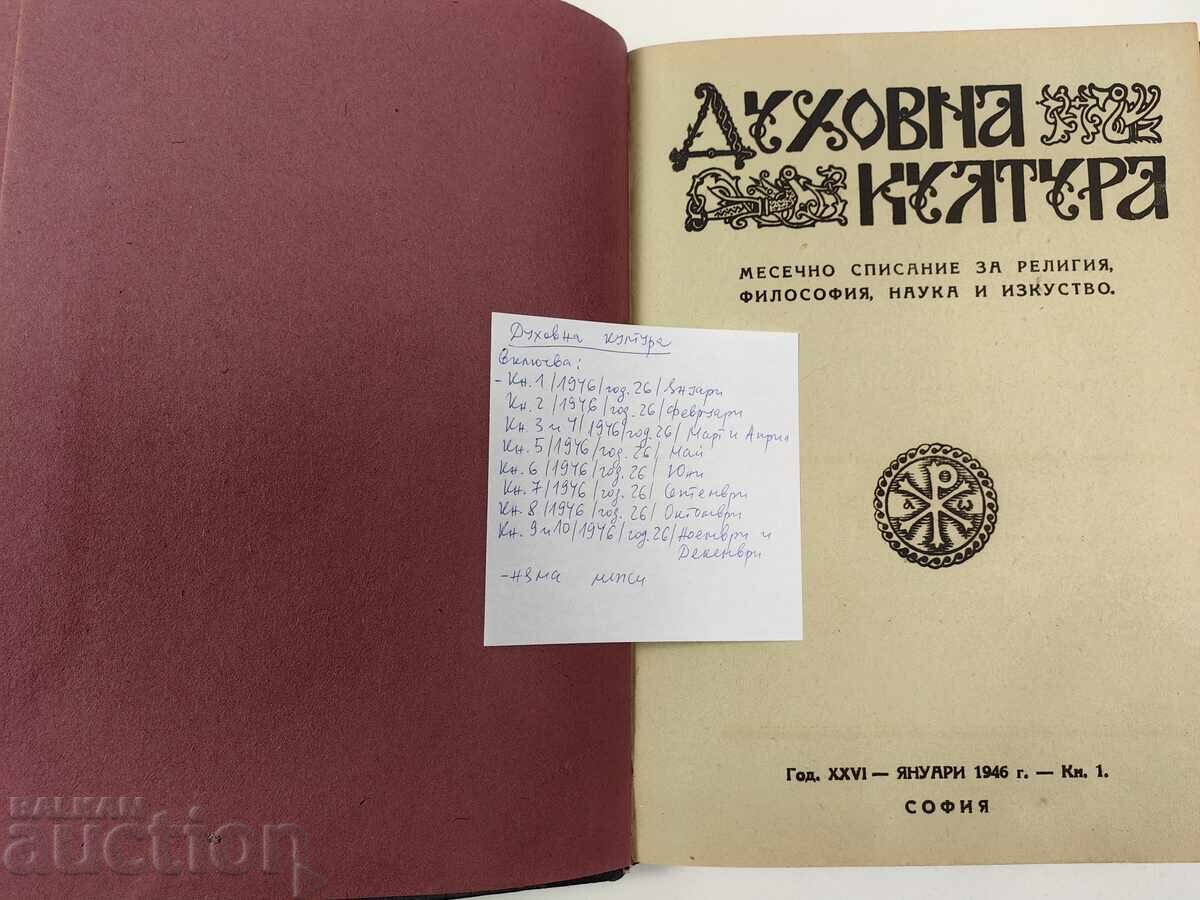 ДУХОВНА
КУЛТУРА
МЕСЕЧНО СПИСАНИЕ ЗА РЕЛИГИЯ,
ФИЛОСОФИЯ, НАУКА И ИЗКУСТВО.
Духовна култура
Включва:
- Кн. 1 / 1946 / год. 26 / Януари
Кн. 2 / 1946 / год. 26 / Февруари
Кн. 3 и 4 / 1946 / год. 26 / Март и Април
Кн. 5 / 1946 / год. 26 / Май
Кн. 6 / 1946 / год. 26 / Юни
Кн. 7 / 1946 / год. 26 / Септември
Кн. 8 / 1946 / год. 26 / Октомври
Кн. 9 и 10 / 1946 / год. 26 / Ноември и
Декември
- няма
Р
Λ ω
Год. XXVI — ЯНУАРИ 1946 г. — Кн. 1.
СОФИЯ
BALKAN
auction